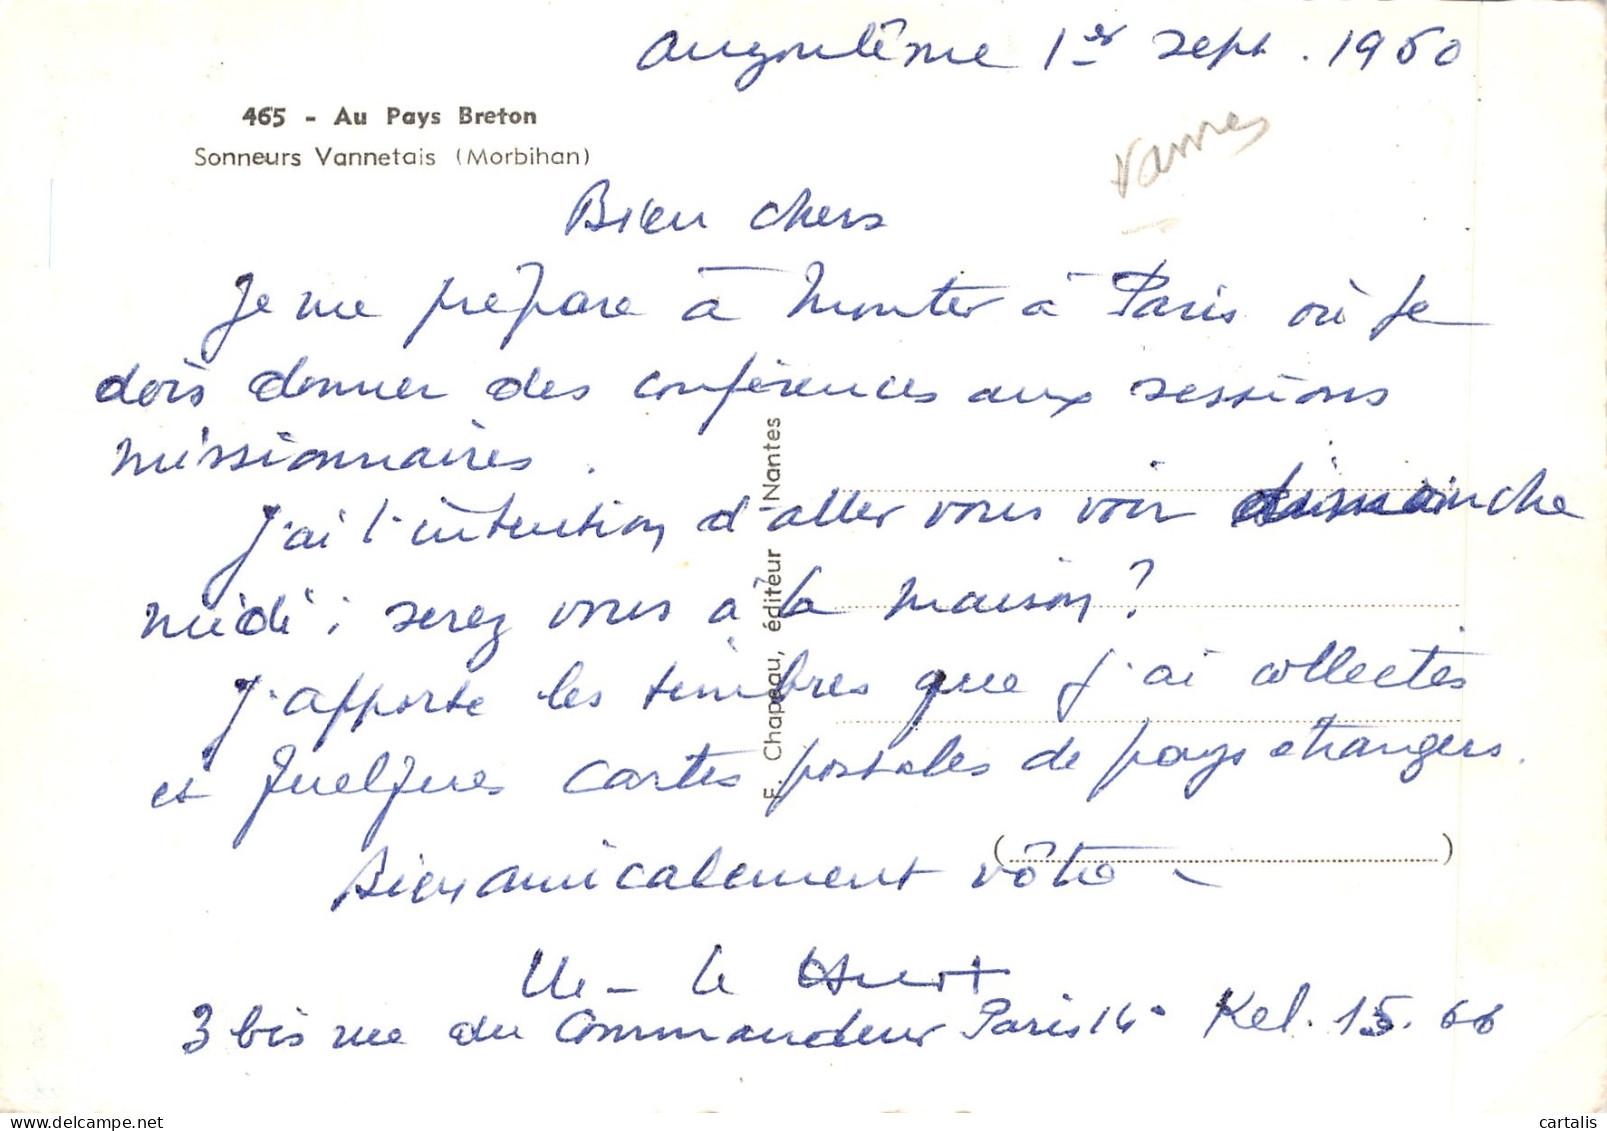 Angoulême 1er sept. 1960
465 - Au Pays Breton
Sonneurs Vannetais (Morbihan)
Vannes
Bien chers
Je me prépare à monter à Paris où je
dois donner des conférences aux sessions
missionnaires.
J'ai l'intention d'aller vous voir dimanche
midi ; serez vous à la maison ?
J'apporte les timbres que j'ai collectés
et quelques cartes postales de pays étrangers.
Bien amicalement vôtre
3 bis rue du Commandeur Paris 14e Kel. 15. 66
E. Chapeau, éditeur - Nantes
cartalis